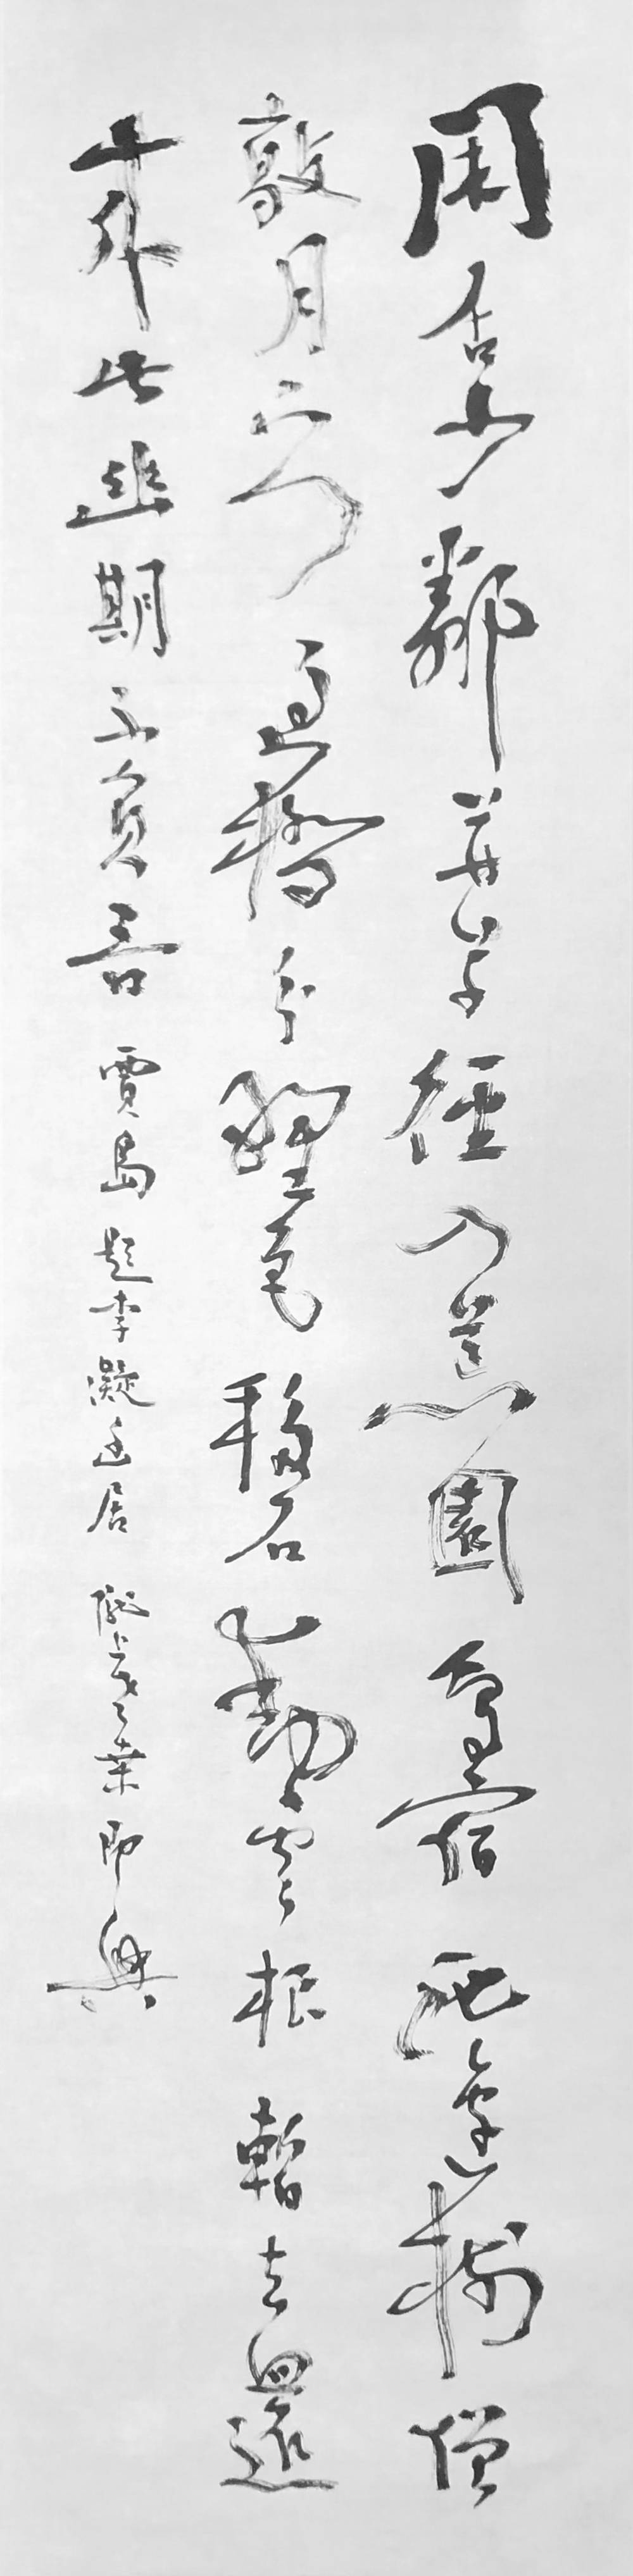 閑居少鄰並草徑入荒園鳥宿池邊樹僧
敲月下門過橋分野色移石動雲根暫去還
來此幽期不負言 賈島題李凝幽居 即興